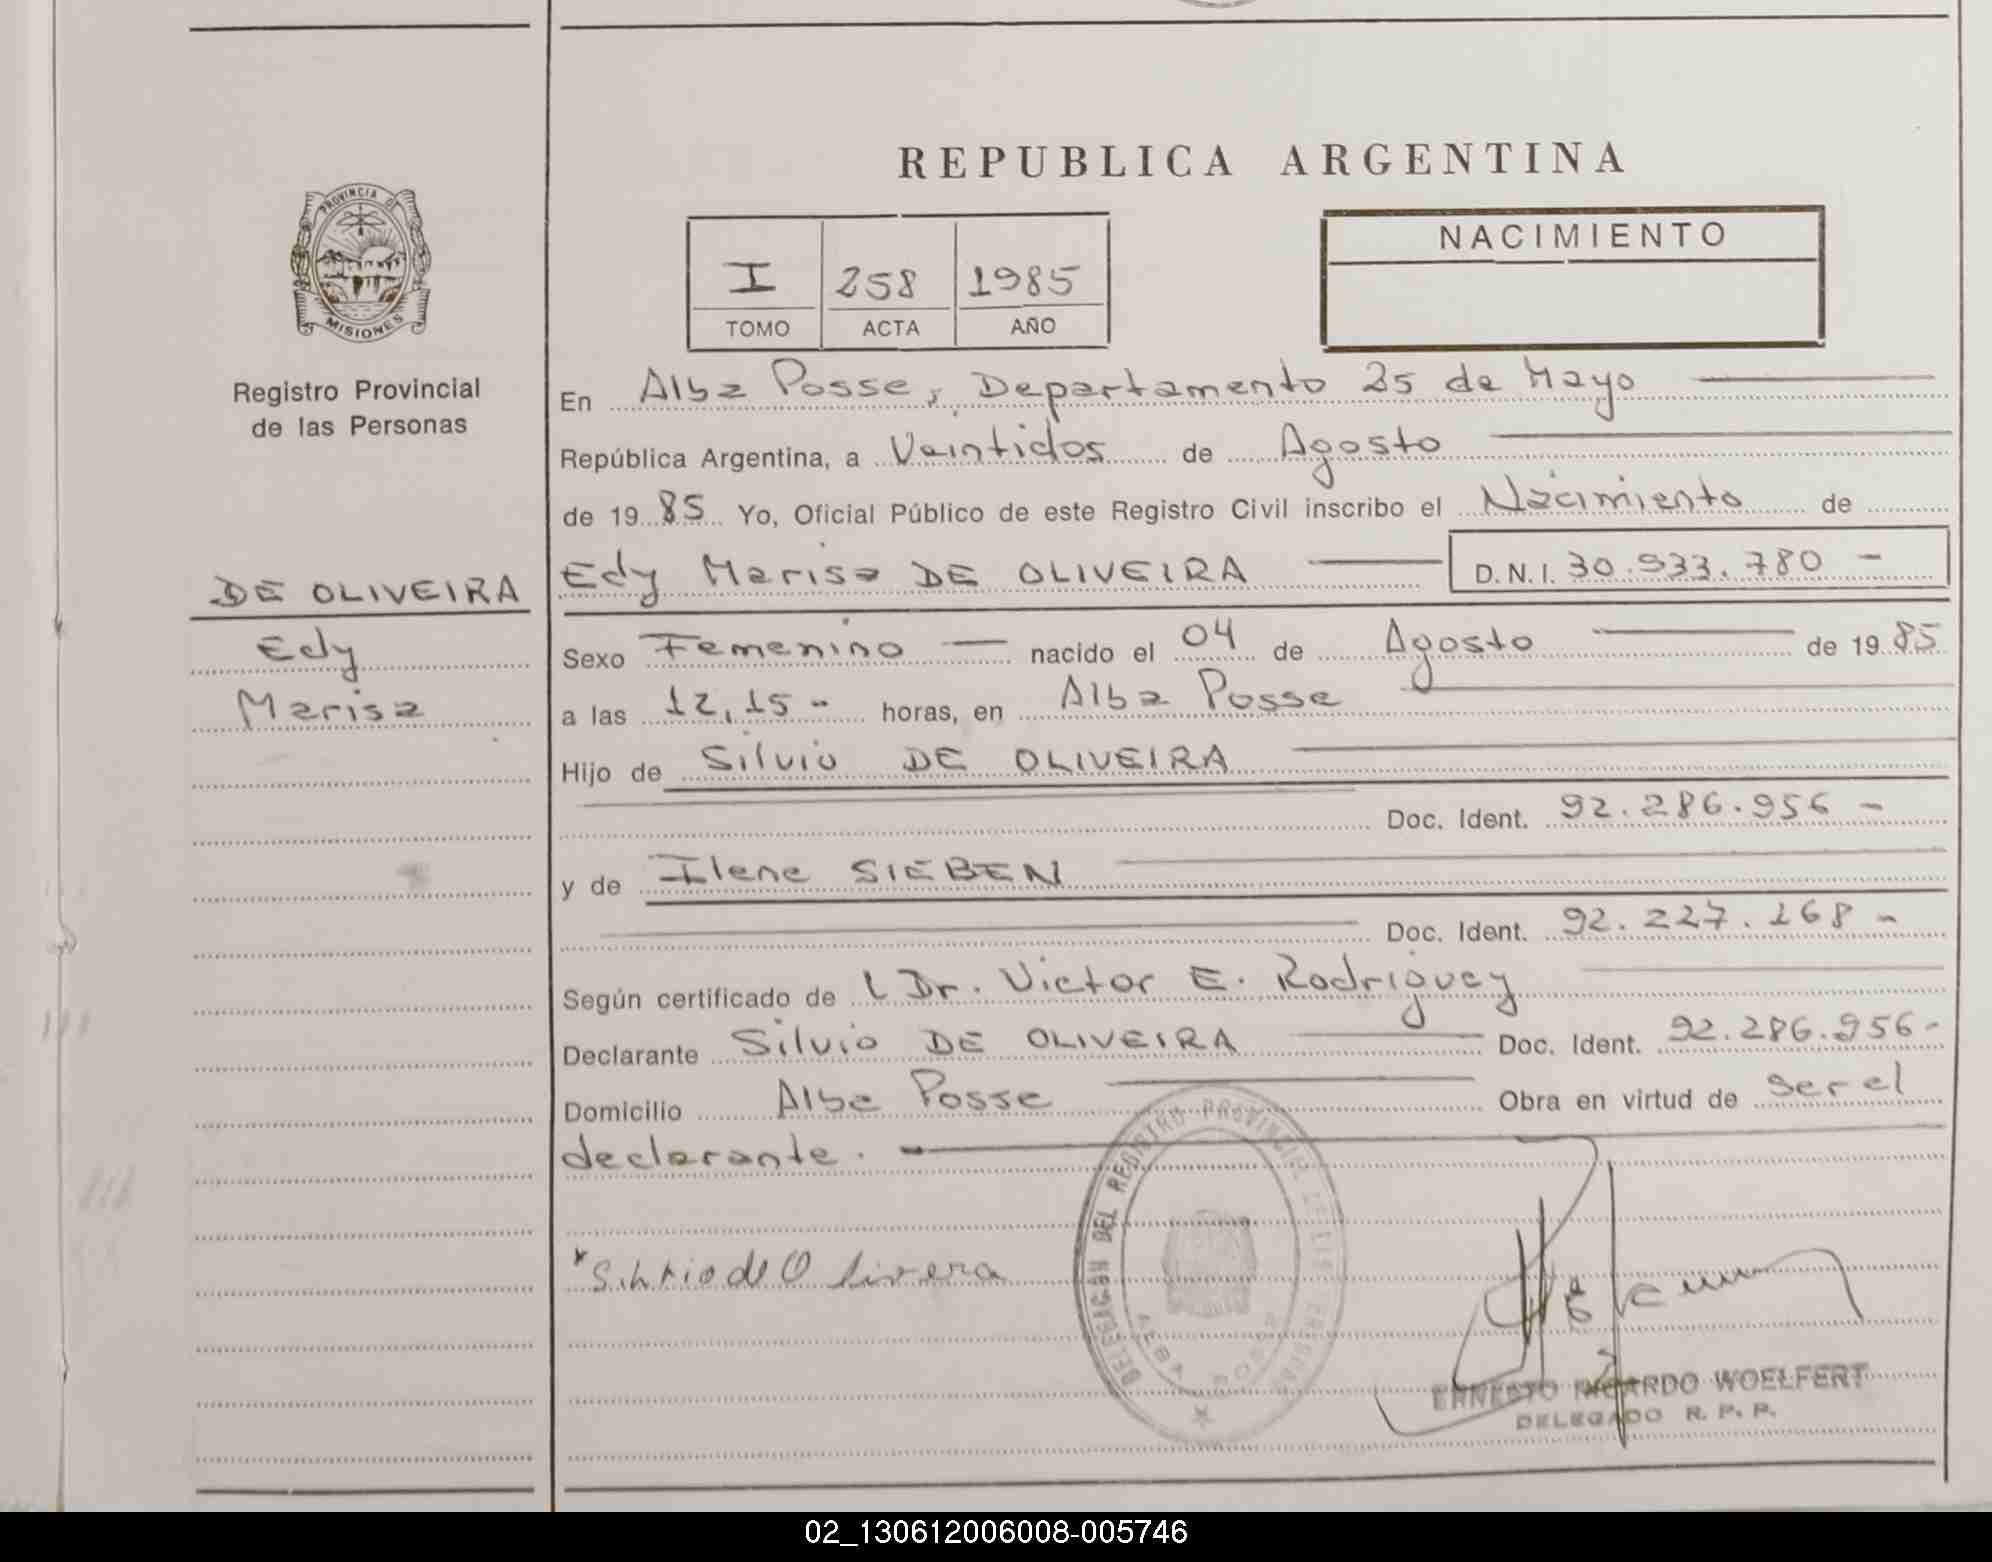 REPUBLICA ARGENTINA
PROVINCIA DE
MISIONES
Registro Provincial
de las Personas
I 258 1985
TOMO ACTA AÑO
NACIMIENTO
En Alba Posse, Departamento 25 de Mayo
República Argentina, a Veintidos de Agosto
de 1985 Yo, Oficial Público de este Registro Civil inscribo el Nacimiento de
DE OLIVEIRA
Edy
Marisa
Edy Marisa DE OLIVEIRA D.N.I. 30.933.780 -
Sexo Femenino nacido el 04 de Agosto de 1985
a las 12,15 - horas, en Alba Posse
Hijo de Silvio DE OLIVEIRA
Doc. Ident. 92.286.956 -
y de Ilene SIEBEN
Doc. Ident. 92.227.168 -
Según certificado de l Dr. Victor E. Rodriguez
Declarante Silvio DE OLIVEIRA Doc. Ident. 92.286.956-
Domicilio Alba Posse Obra en virtud de ser el
declarante.
DELEGACION DEL REGISTRO PROVINCIAL DE LAS PERSONAS
ALBA POSSE
ERNESTO RICARDO WOELFERT
DELEGADO R. P. P.
02_130612006008-005746